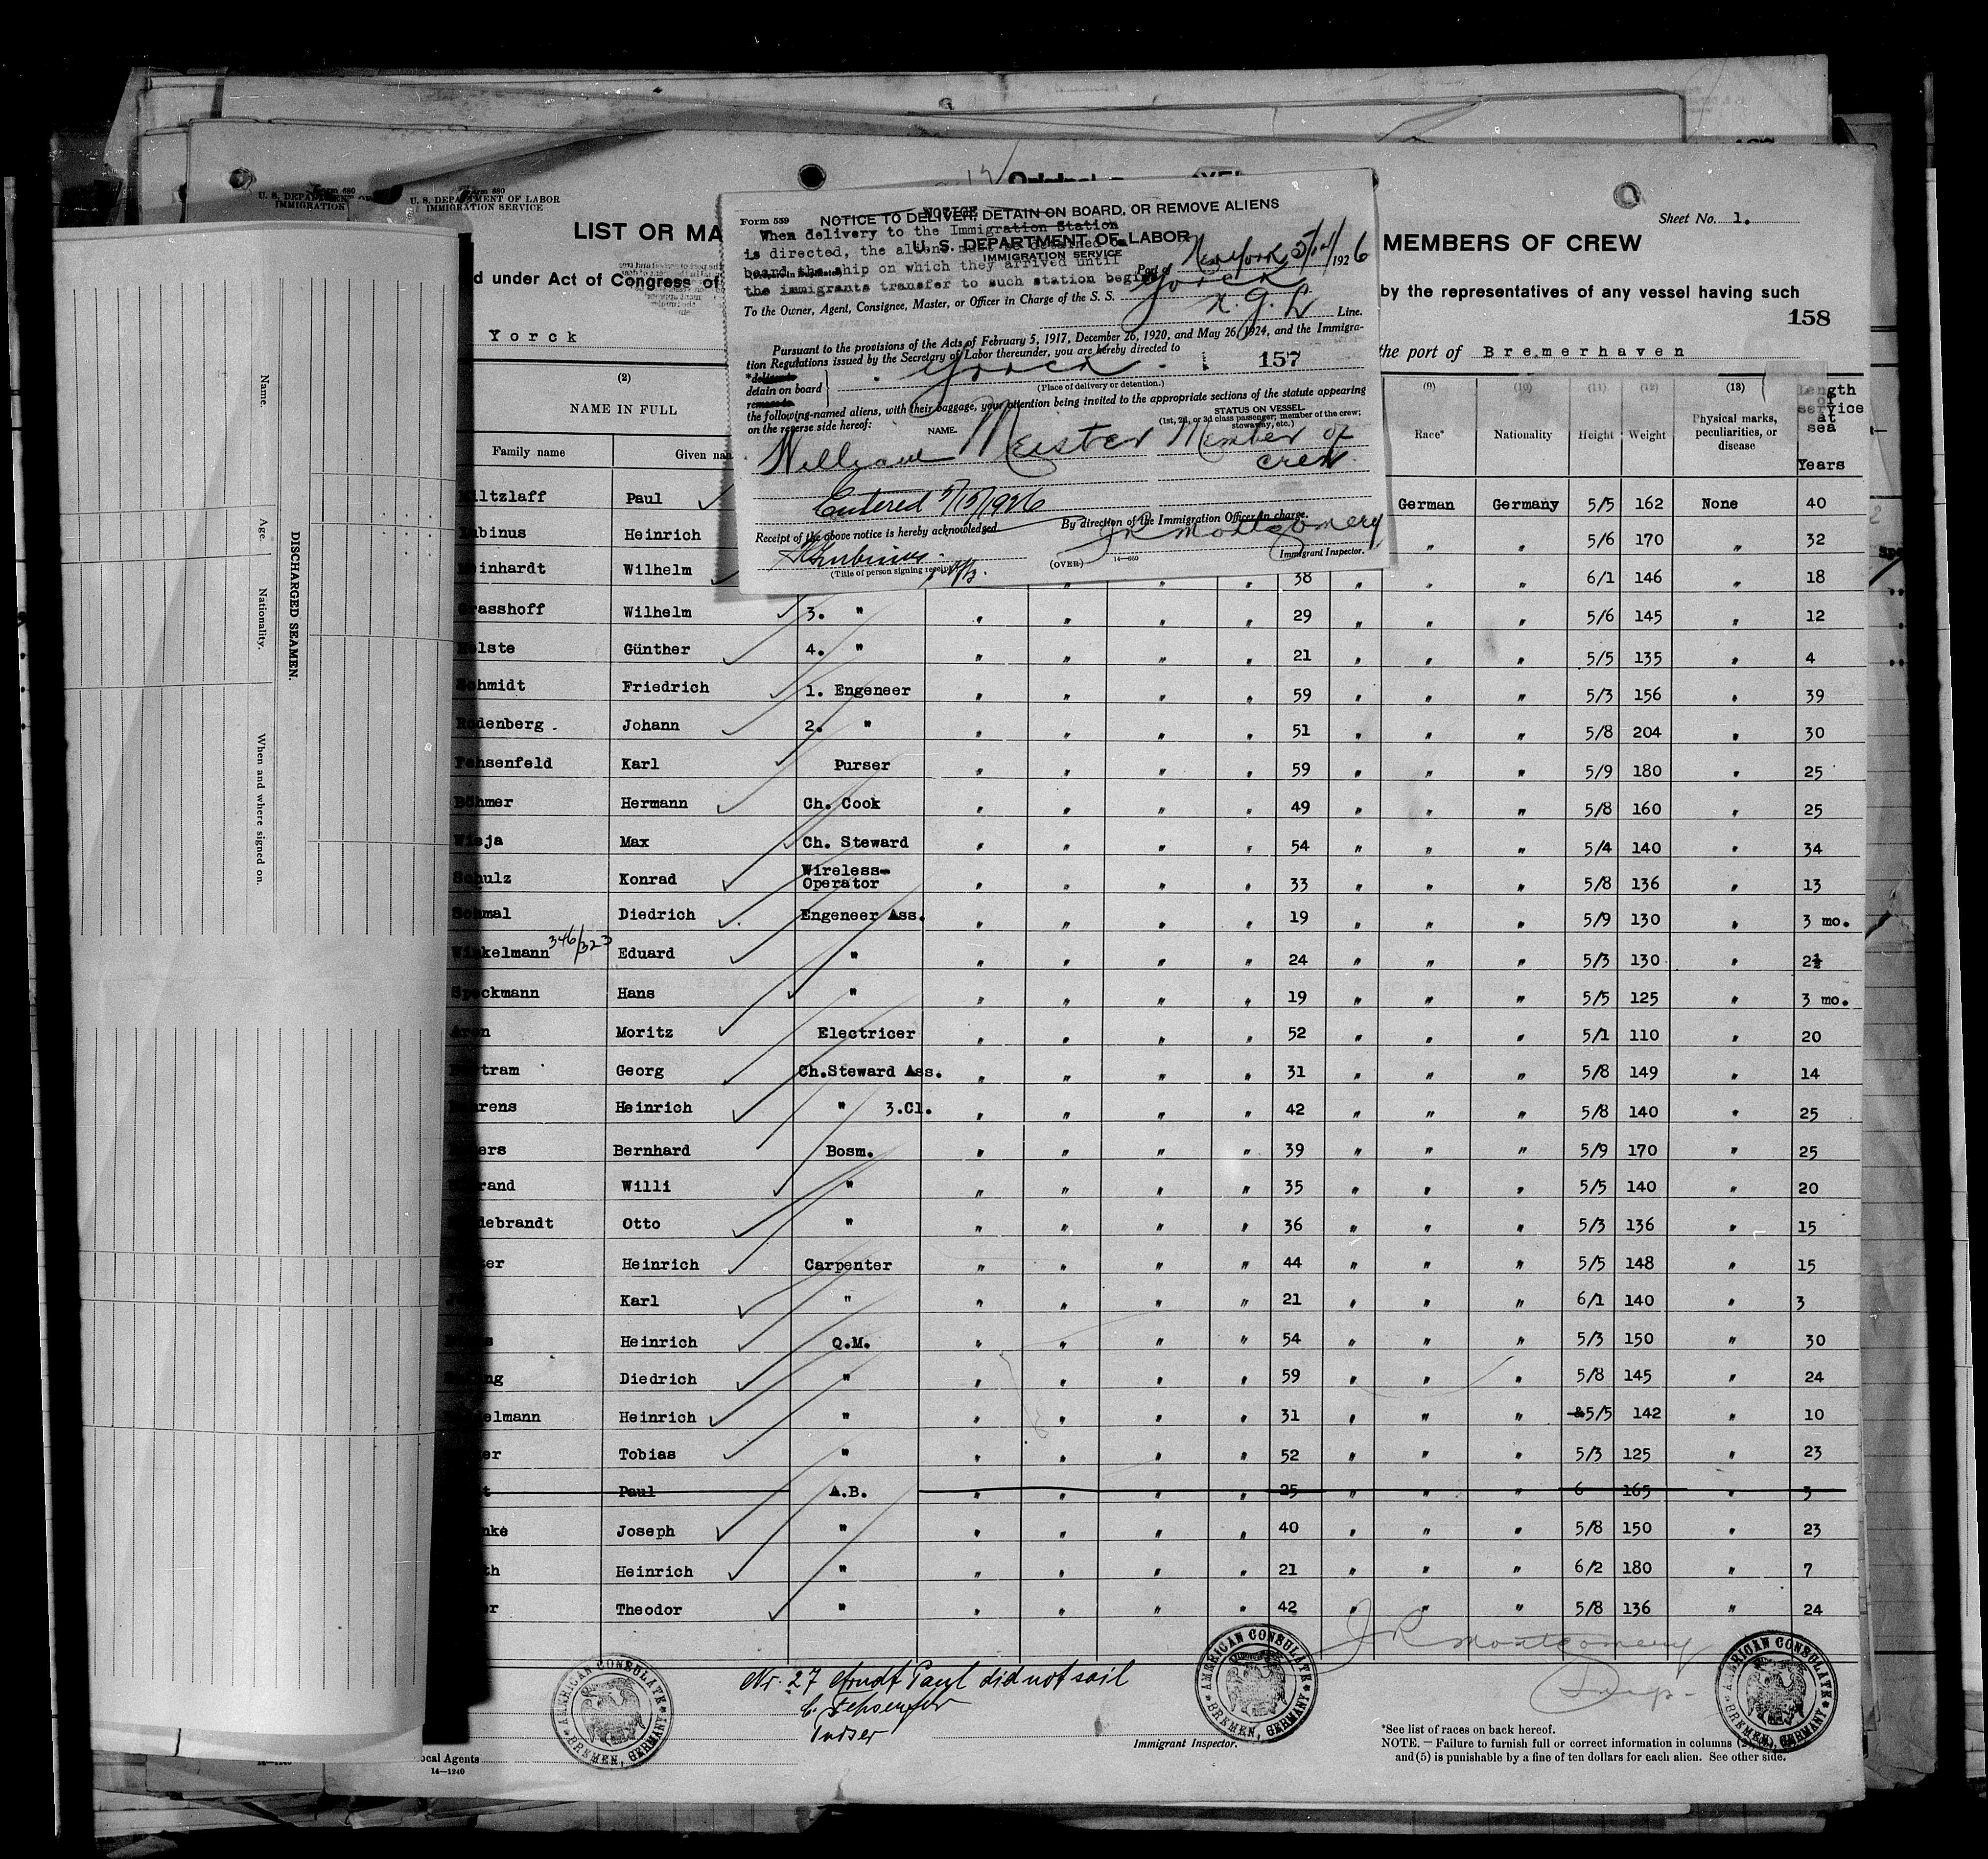 U. S. DEPARTMENT OF LABOR
IMMIGRATION SERVICE
LIST OR MA
MEMBERS OF CREW
Sheet No. 1.
d under Act of Congress of
by the representatives of any vessel having such
158
Yorck
the port of Bremerhaven
Form 559
NOTICE TO DELIVER, DETAIN ON BOARD, OR REMOVE ALIENS
NOTICE
When delivery to the Immigration Station
is directed, the aliens must be detained on
board the ship on which they arrived until
the immigrants transfer to such station begins
U. S. DEPARTMENT OF LABOR
IMMIGRATION SERVICE
Port of New York 5/14/1926
To the Owner, Agent, Consignee, Master, or Officer in Charge of the S. S. Yorck
N. G. L Line.
Pursuant to the provisions of the Acts of February 5, 1917, December 26, 1920, and May 26, 1924, and the Immigra-
tion Regulations issued by the Secretary of Labor thereunder, you are hereby directed to
*deliver to
detain on board
remove to
Yorck
157
(Place of delivery or detention.)
the following-named aliens, with their baggage, your attention being invited to the appropriate sections of the statute appearing
on the reverse side hereof:
NAME.
STATUS ON VESSEL.
(1st, 2d, or 3d class passenger; member of the crew;
stowaway, etc.)
William Meister Member of
crew
Entered 5/15/1926
Receipt of the above notice is hereby acknowledged
By direction of the Immigration Officer in charge.
J R Montgomery
Immigrant Inspector.
(Title of person signing receipt)
(OVER)
14—660
Name.
Age.
Nationality.
When and where signed on.
DISCHARGED SEAMEN.
(2) (9) (10) (11) (12) (13)
NAME IN FULL
Family name Given nam
Race* Nationality Height Weight
Physical marks,
peculiarities, or
disease
Length
of
service
at
sea
Years
Paul German Germany 5/5 162 None 40
Heinrich " " 5/6 170 " 32
Wilhelm " " " " 38 " " " 6/1 146 " 18
Grasshoff Wilhelm 3. " " " " " 29 " " " 5/6 145 " 12
Holste Günther 4. " " " " " 21 " " " 5/5 135 " 4
Schmidt Friedrich 1. Engeneer " " " " 59 " " " 5/3 156 " 39
Rodenberg. Johann 2. " " " " " 51 " " " 5/8 204 " 30
Fehsenfeld Karl Purser " " " " 59 " " " 5/9 180 " 25
Böhmer Hermann Ch. Cook " " " " 49 " " " 5/8 160 " 25
Wieja Max Ch. Steward " " " " 54 " " " 5/4 140 " 34
Schulz Konrad Wireless-
Operator " " " " 33 " " " 5/8 136 " 13
Schmal Diedrich Engeneer Ass. " " " " 19 " " " 5/9 130 " 3 mo.
Winkelmann 346/323 Eduard " " " " " 24 " " " 5/3 130 " 2½
Speckmann Hans " " " " " 19 " " " 5/5 125 " 3 mo.
Aron Moritz Electricer " " " " 52 " " " 5/1 110 " 20
tram Georg Ch.Steward Ass. " " " " 31 " " " 5/8 149 " 14
rens Heinrich " 3.Cl. " " " " 42 " " " 5/8 140 " 25
ers Bernhard Bosm. " " " " 39 " " " 5/9 170 " 25
rand Willi " " " " " 35 " " " 5/5 140 " 20
debrandt Otto " " " " " 36 " " " 5/3 136 " 15
ter Heinrich Carpenter " " " " 44 " " " 5/5 148 " 15
Karl " " " " " 21 " " " 6/1 140 " 3
s Heinrich Q.M. " " " " 54 " " " 5/3 150 " 30
ng Diedrich " " " " " 59 " " " 5/8 145 " 24
elmann Heinrich " " " " " 31 " " " 5/5 142 " 10
er Tobias " " " " " 52 " " " 5/3 125 " 23
t Paul A.B. " " " " 25 " " " 6 165 " 3
nke Joseph " " " " " 40 " " " 5/8 150 " 23
th Heinrich " " " " " 21 " " " 6/2 180 " 7
er Theodor " " " " " 42 " " " 5/8 136 " 24
J R Montgomery
Insp.
Nr. 27 Arndt Paul did not sail
C. Fehsenfeld
Purser
AMERICAN CONSULATE
BREMEN, GERMANY
AMERICAN CONSULATE
BREMEN, GERMANY
AMERICAN CONSULATE
BREMEN, GERMANY
Immigrant Inspector.
ocal Agents
14—1240
*See list of races on back hereof.
NOTE.—Failure to furnish full or correct information in columns (2),
and (5) is punishable by a fine of ten dollars for each alien. See other side.